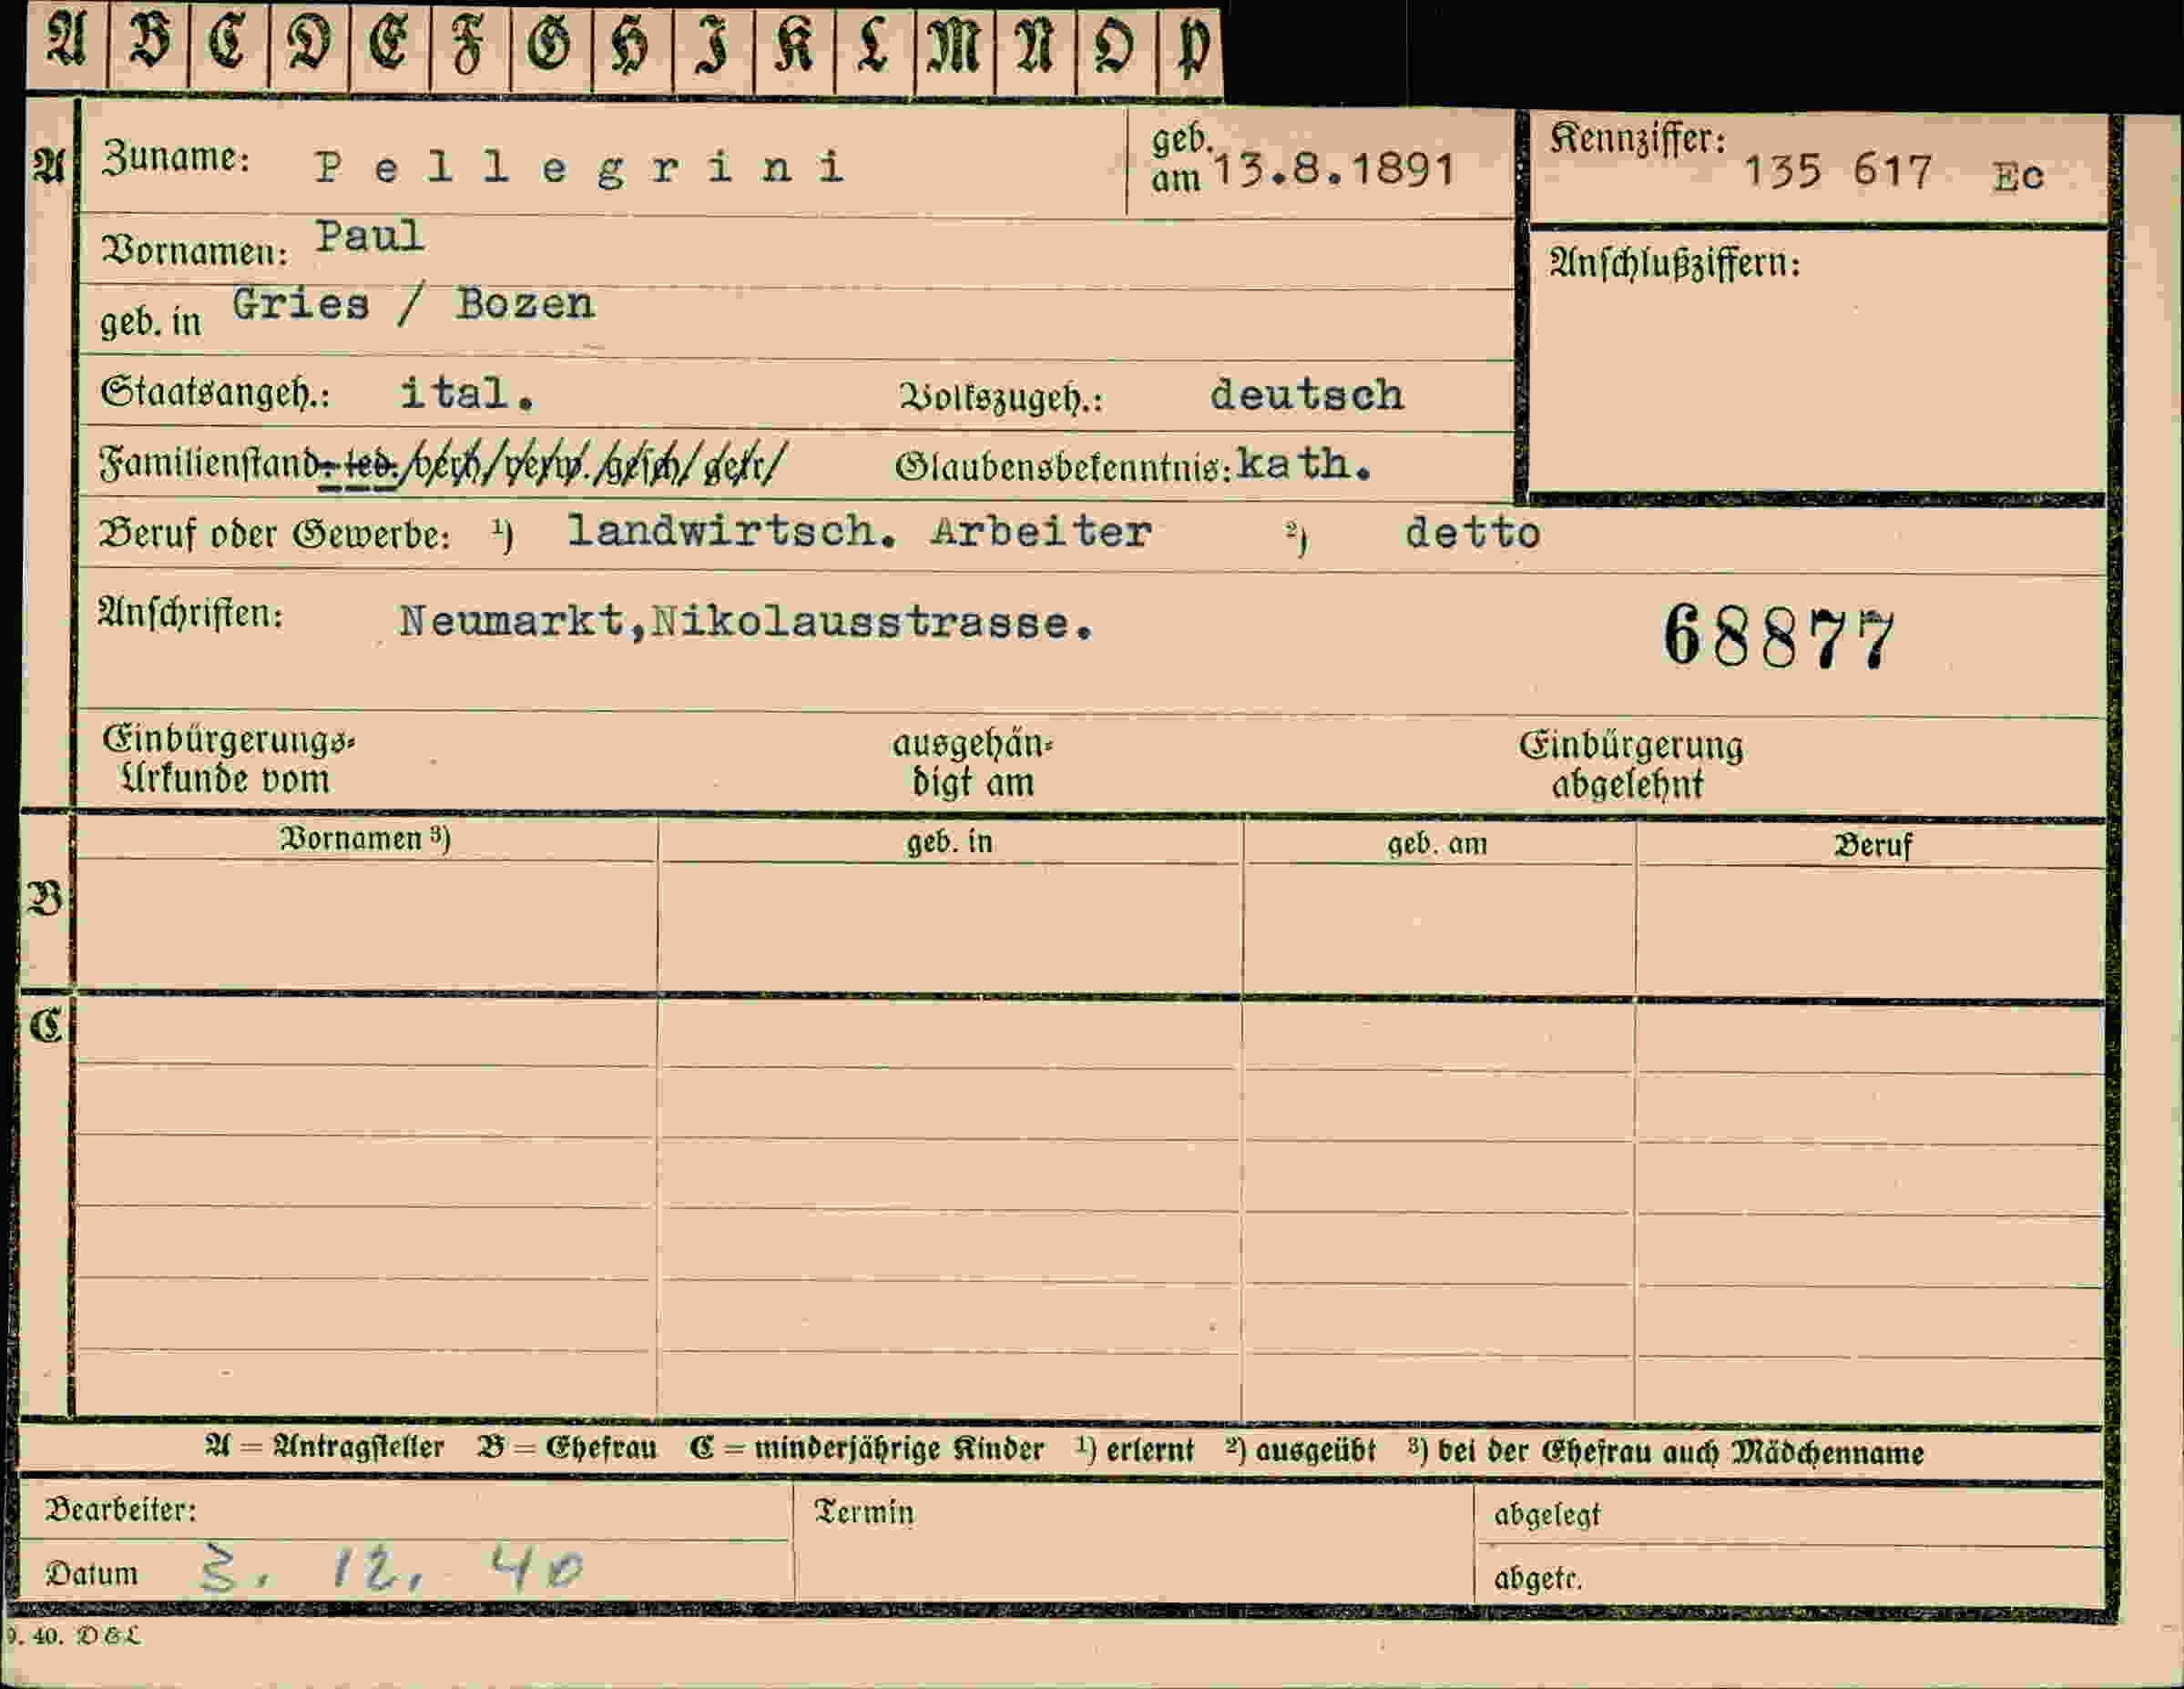 A B C D E F G H I K L M N O P
A Zuname: Pellegrini geb. am 13.8.1891 Kennziffer: 135 617 Ec
Vornamen: Paul
Anschlußziffern:
geb. in Gries / Bozen
Staatsangeh.: ital. Volkszugeh.: deutsch
Familienstand: led./verh/verw./gesch/getr/ Glaubensbekenntnis: kath.
Beruf oder Gewerbe: ¹) landwirtsch. Arbeiter ²) detto
Anschriften: Neumarkt,Nikolausstrasse. 68877
Einbürgerungs- ausgehän- Einbürgerung
Urkunde vom digt am abgelehnt
Vornamen ³) geb. in geb. am Beruf
B
C
A = Antragsteller B = Ehefrau C = minderjährige Kinder ¹) erlernt ²) ausgeübt ³) bei der Ehefrau auch Mädchenname
Bearbeiter: Termin abgelegt
Datum 3. 12. 40 abgetr.
9. 40. D & L